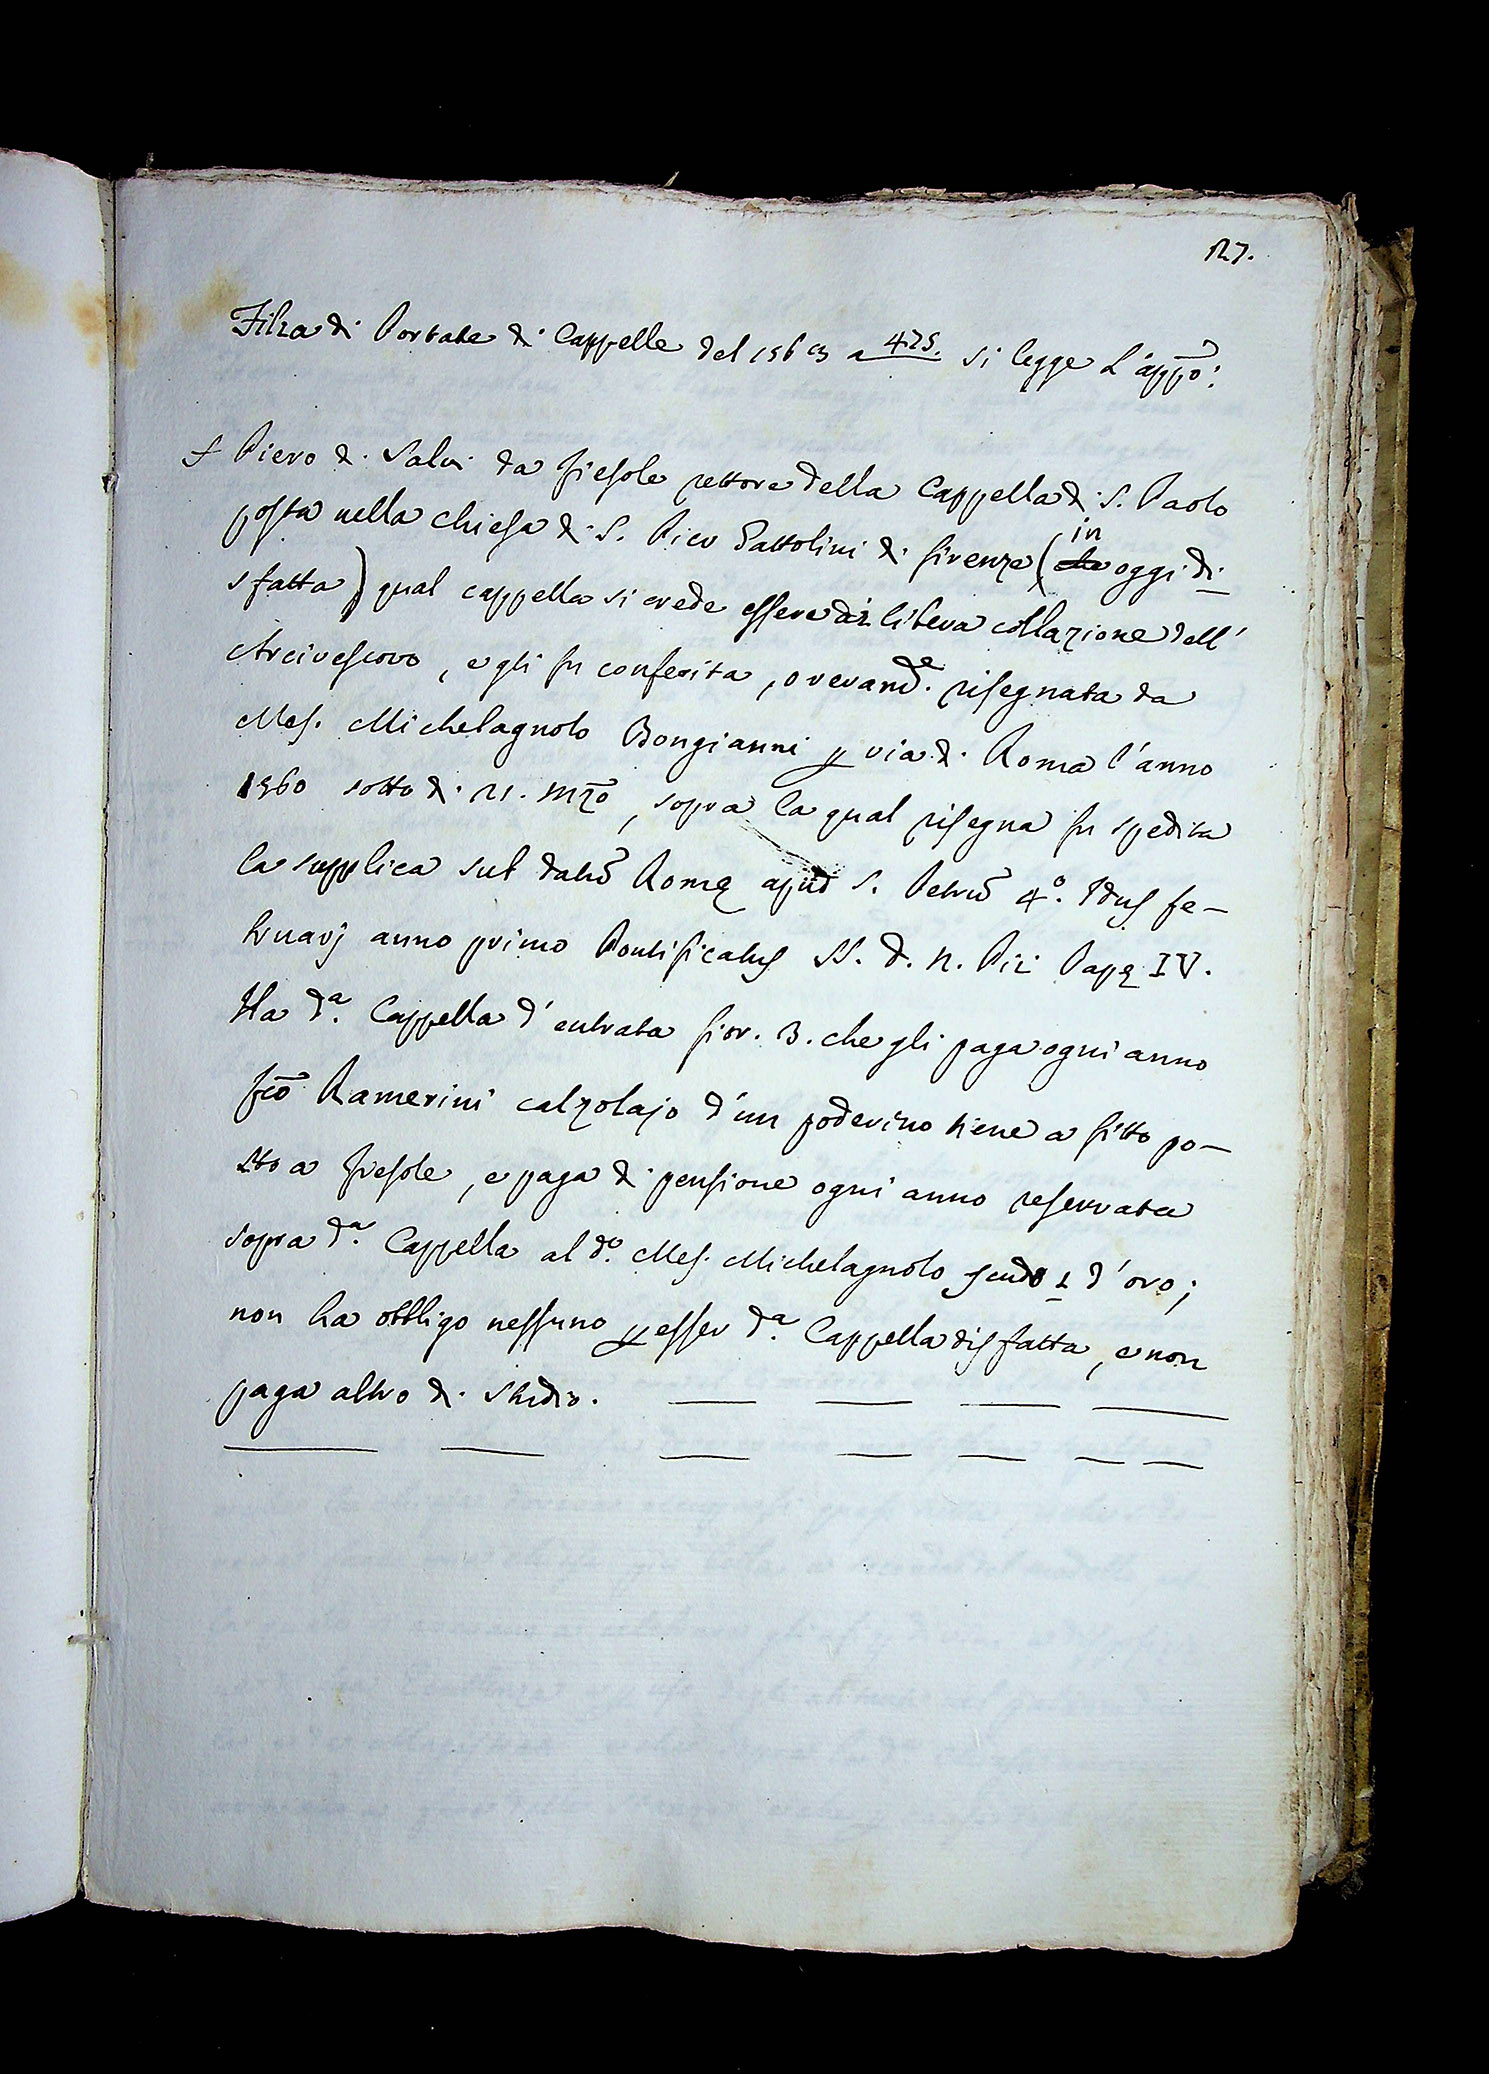 127.
Filza di Portate di Cappelle del 1563 a 425. si legge l'appõ:
+ Piero di Salvi da Fiesole rettore della Cappella di S. Paolo
posta nella chiesa di S. Pier Gattolini di firenze (in oggi di-
sfatta) qual cappella si crede essere di libera collazione dell'
Arcivescovo, e gli fu conferita, o veramẽ.te risegnata da
Mes. Michelagnolo Bongianni p via di Roma l'anno
1560 sotto di 21. mzõ, sopra la qual risegna fu spedita
la supplica sub datũ Romę apud S. Petrũ 4º. Idus fe-
bruarj anno primo Pontificatus SS. D. N. Pii Papę IV.
Ha d.ª Cappella d'entrata fior. 3. che gli paga ogni anno
fcõ Ramerini calzolajo d'un poderino tiene a fitto po-
sto a fiesole, e paga di pensione ogni anno reservata
sopra d.ª Cappella al d.º Mes. Michelagnolo scudo 1 d'oro;
non ha obbligo nessuno p esser d.ª Cappella disfatta, e non
paga altro di Studio.